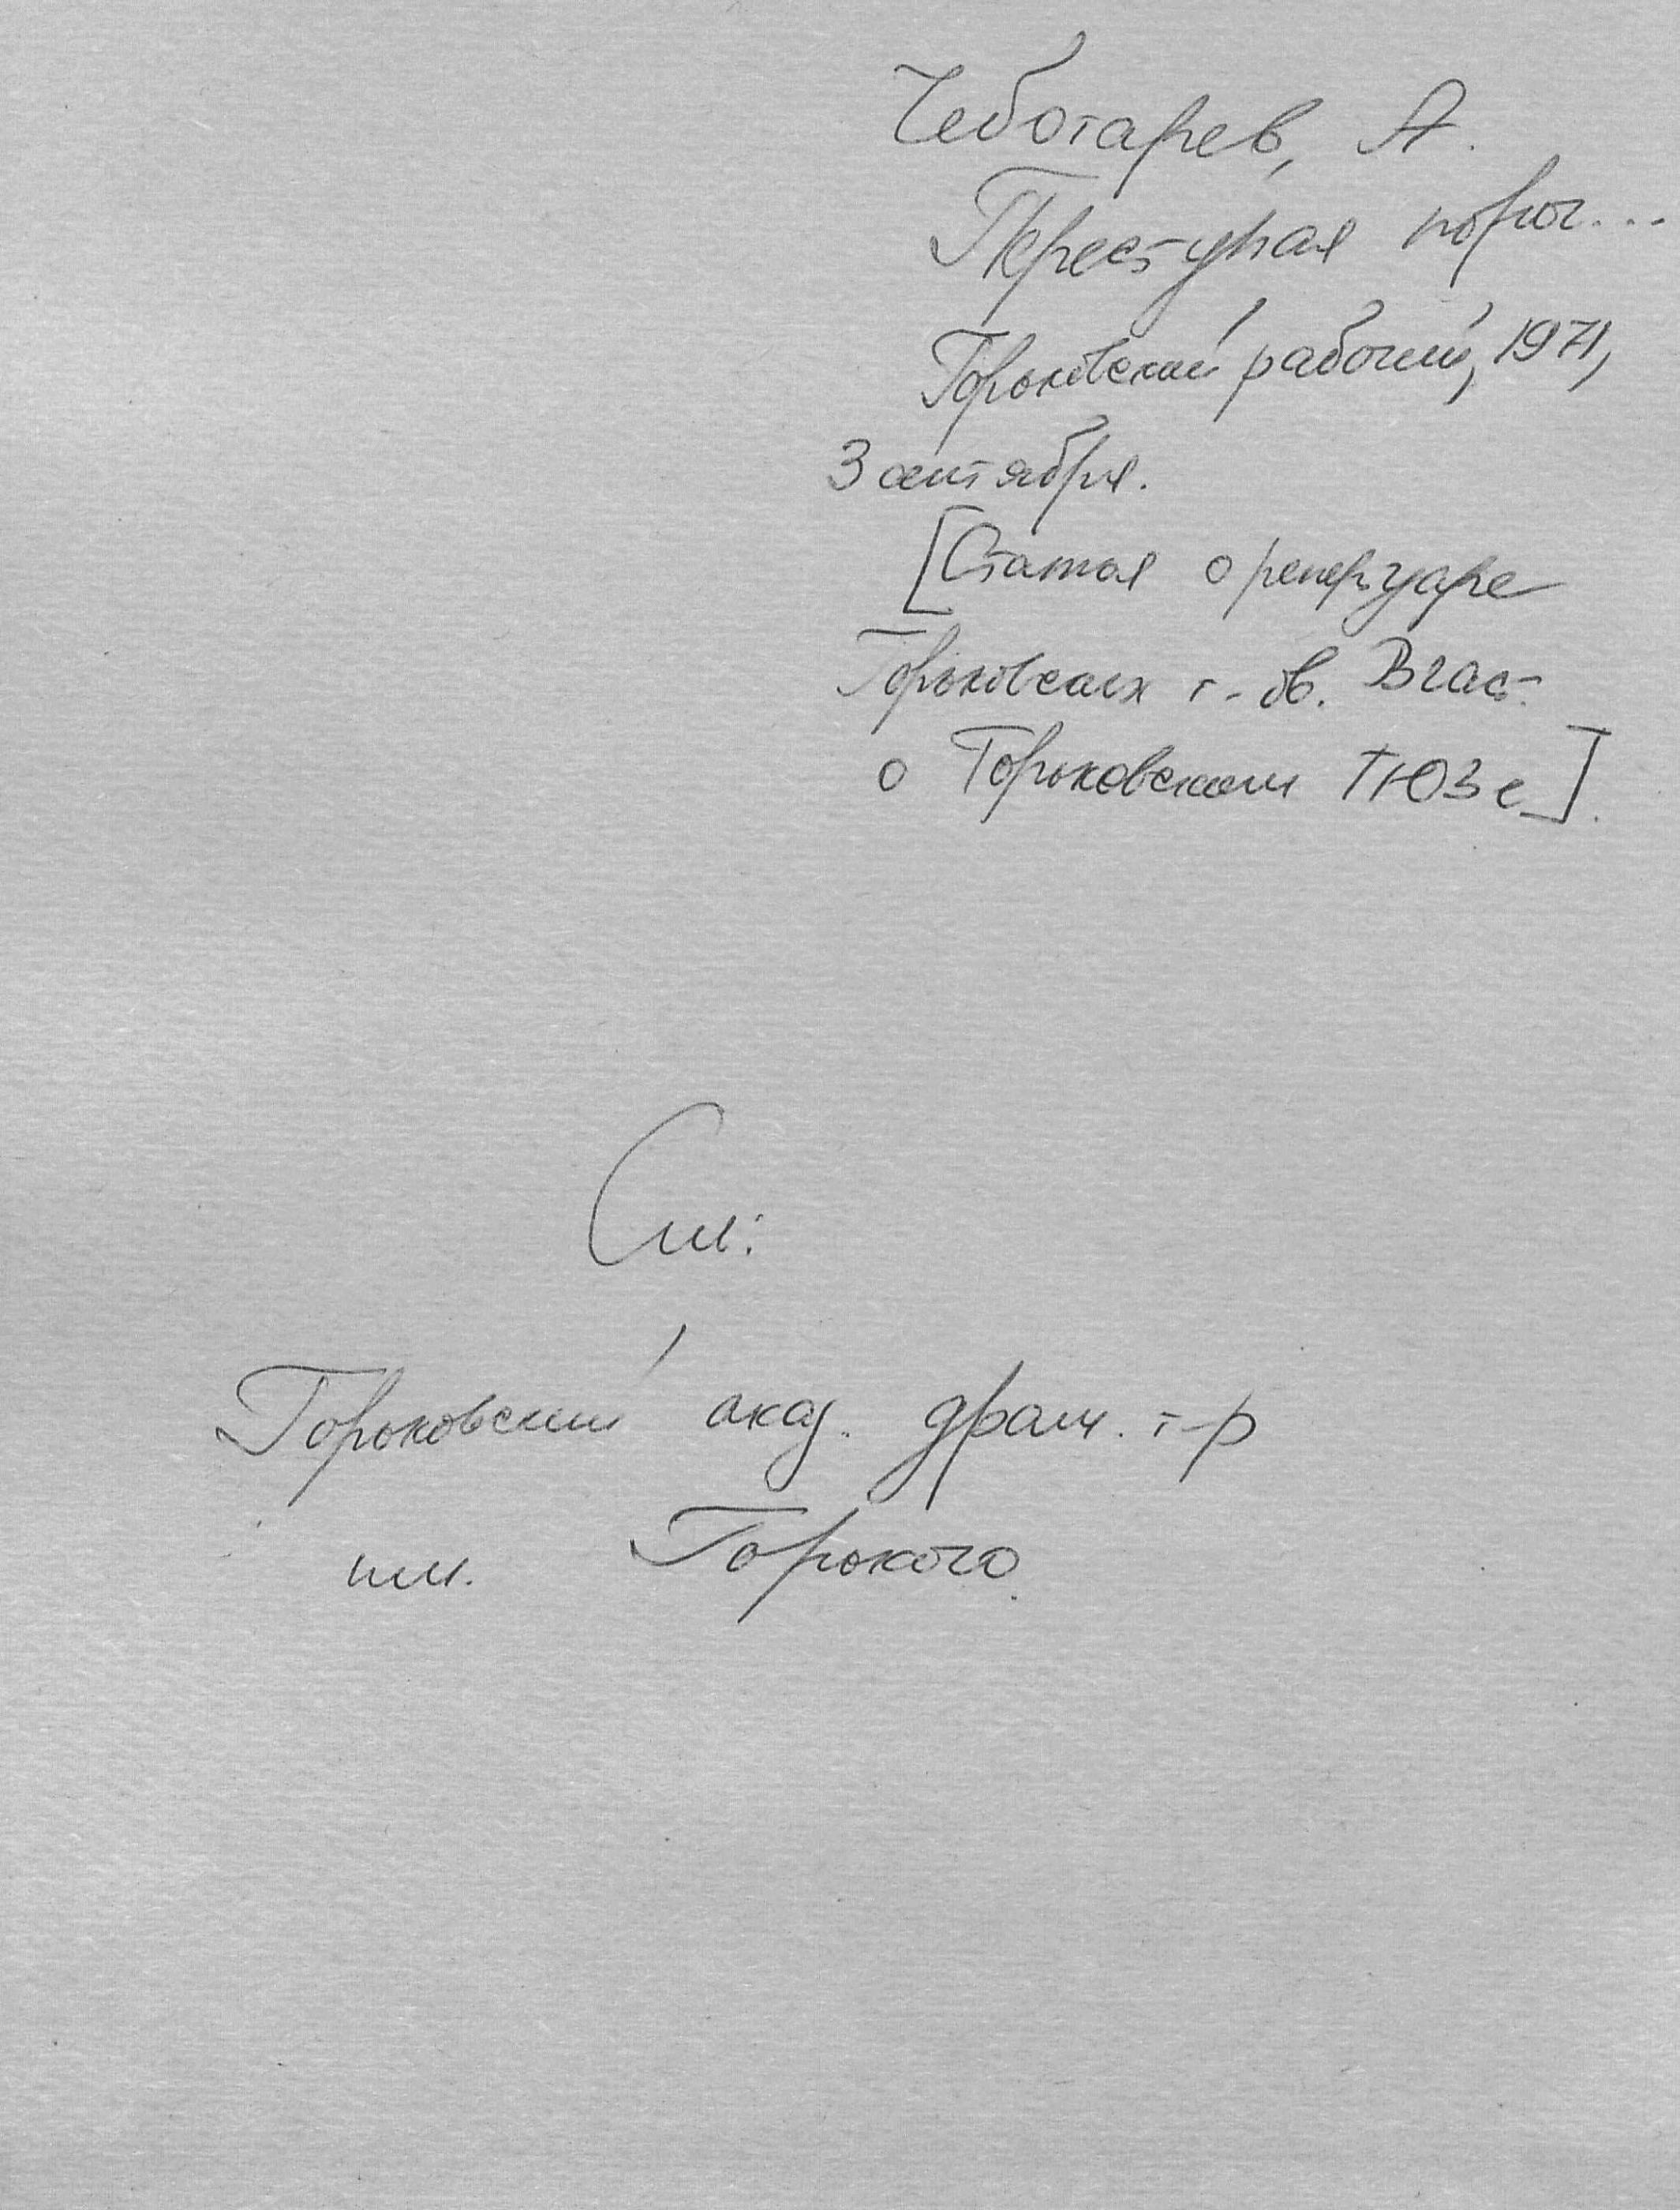 Чеботарев, А.
Переступая порог...
Горьковский рабочий, 1971,
3 сентября.
[Статья о репертуаре
Горьковских т-ов. В част.
о Горьковском ТЮЗе].
См:
Горьковский акад. драм. т-р
им. Горького.